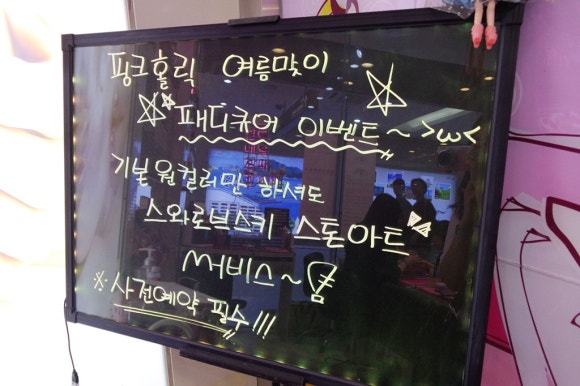 핑크홀릭 여름맞이
패디큐어 이벤트~ >ω<
기본원컬러만 하셔도
스와로브스키 스톤아트
써비스~
※ 사전예약 필수!!!